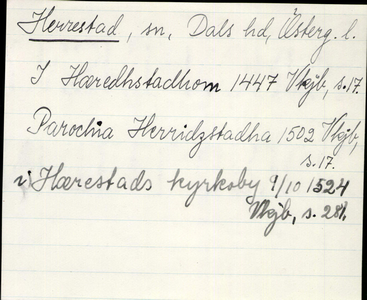 Herrestad, sn, Dals hd, Österg. l.
I Hæredhstadhom 1447 Vkjb, s.17.
Parochia Herridzstadha 1502 Vkjb,
s.17.
i Hærestads kyrkoby 9/10 1524
Vkjb, s. 281.